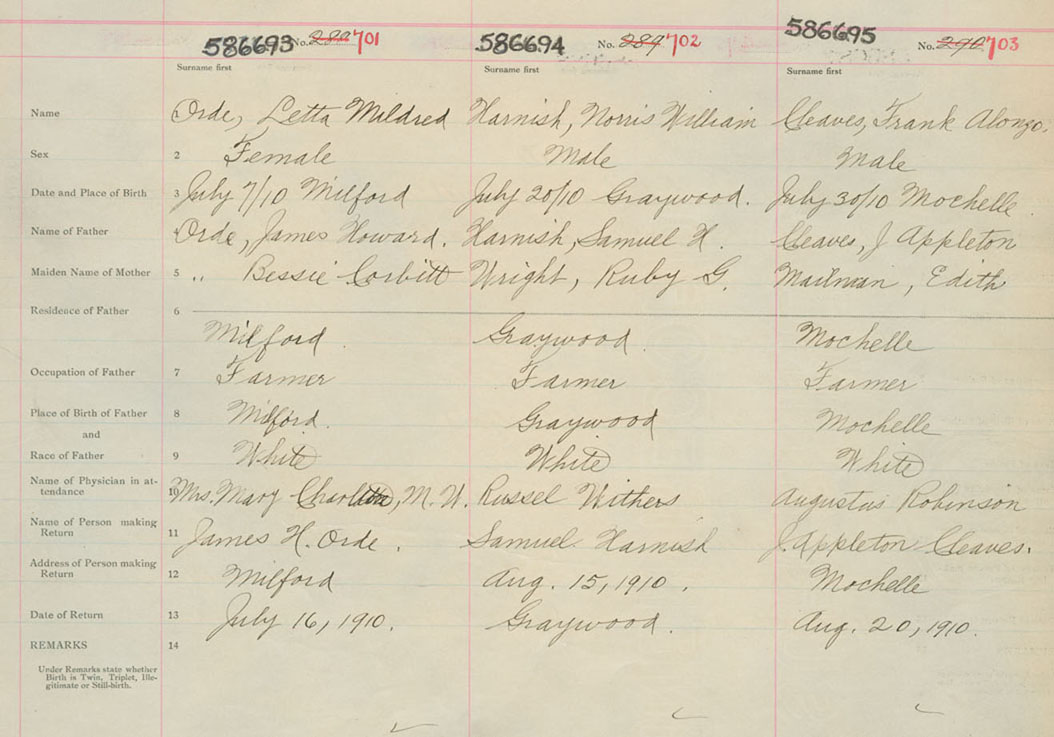 586693 No. 288 701 586694 No. 289 702 586695 No. 290 703
Surname first Surname first Surname first
Name Orde, Letta Mildred Harnish, Norris William Cleaves, Frank Alonzo.
Sex 2 Female Male Male
Date and Place of Birth 3 July 7/10 Milford July 20/10 Graywood. July 30/10 Mochelle
Name of Father Orde, James Howard. Harnish, Samuel H. Cleaves, J Appleton
Maiden Name of Mother 5 " Bessie Corbitt Wright, Ruby G. Mailman, Edith
Residence of Father 6
Milford. Graywood. Mochelle
Occupation of Father 7 Farmer Farmer Farmer
Place of Birth of Father 8 Milford. Graywood Mochelle
and
Race of Father 9 White White White
Name of Physician in at-
tendance 10 Mrs. Mary Charlton, M.W. Russel Withers Augustus Robinson
Name of Person making
Return 11 James H. Orde. Samuel Harnish J. Appleton Cleaves.
Address of Person making
Return 12 Milford Aug. 15, 1910. Mochelle
Date of Return 13 July 16, 1910. Graywood. Aug. 20, 1910.
REMARKS 14
Under Remarks state whether
Birth is Twin, Triplet, Ille-
gitimate or Still-birth.